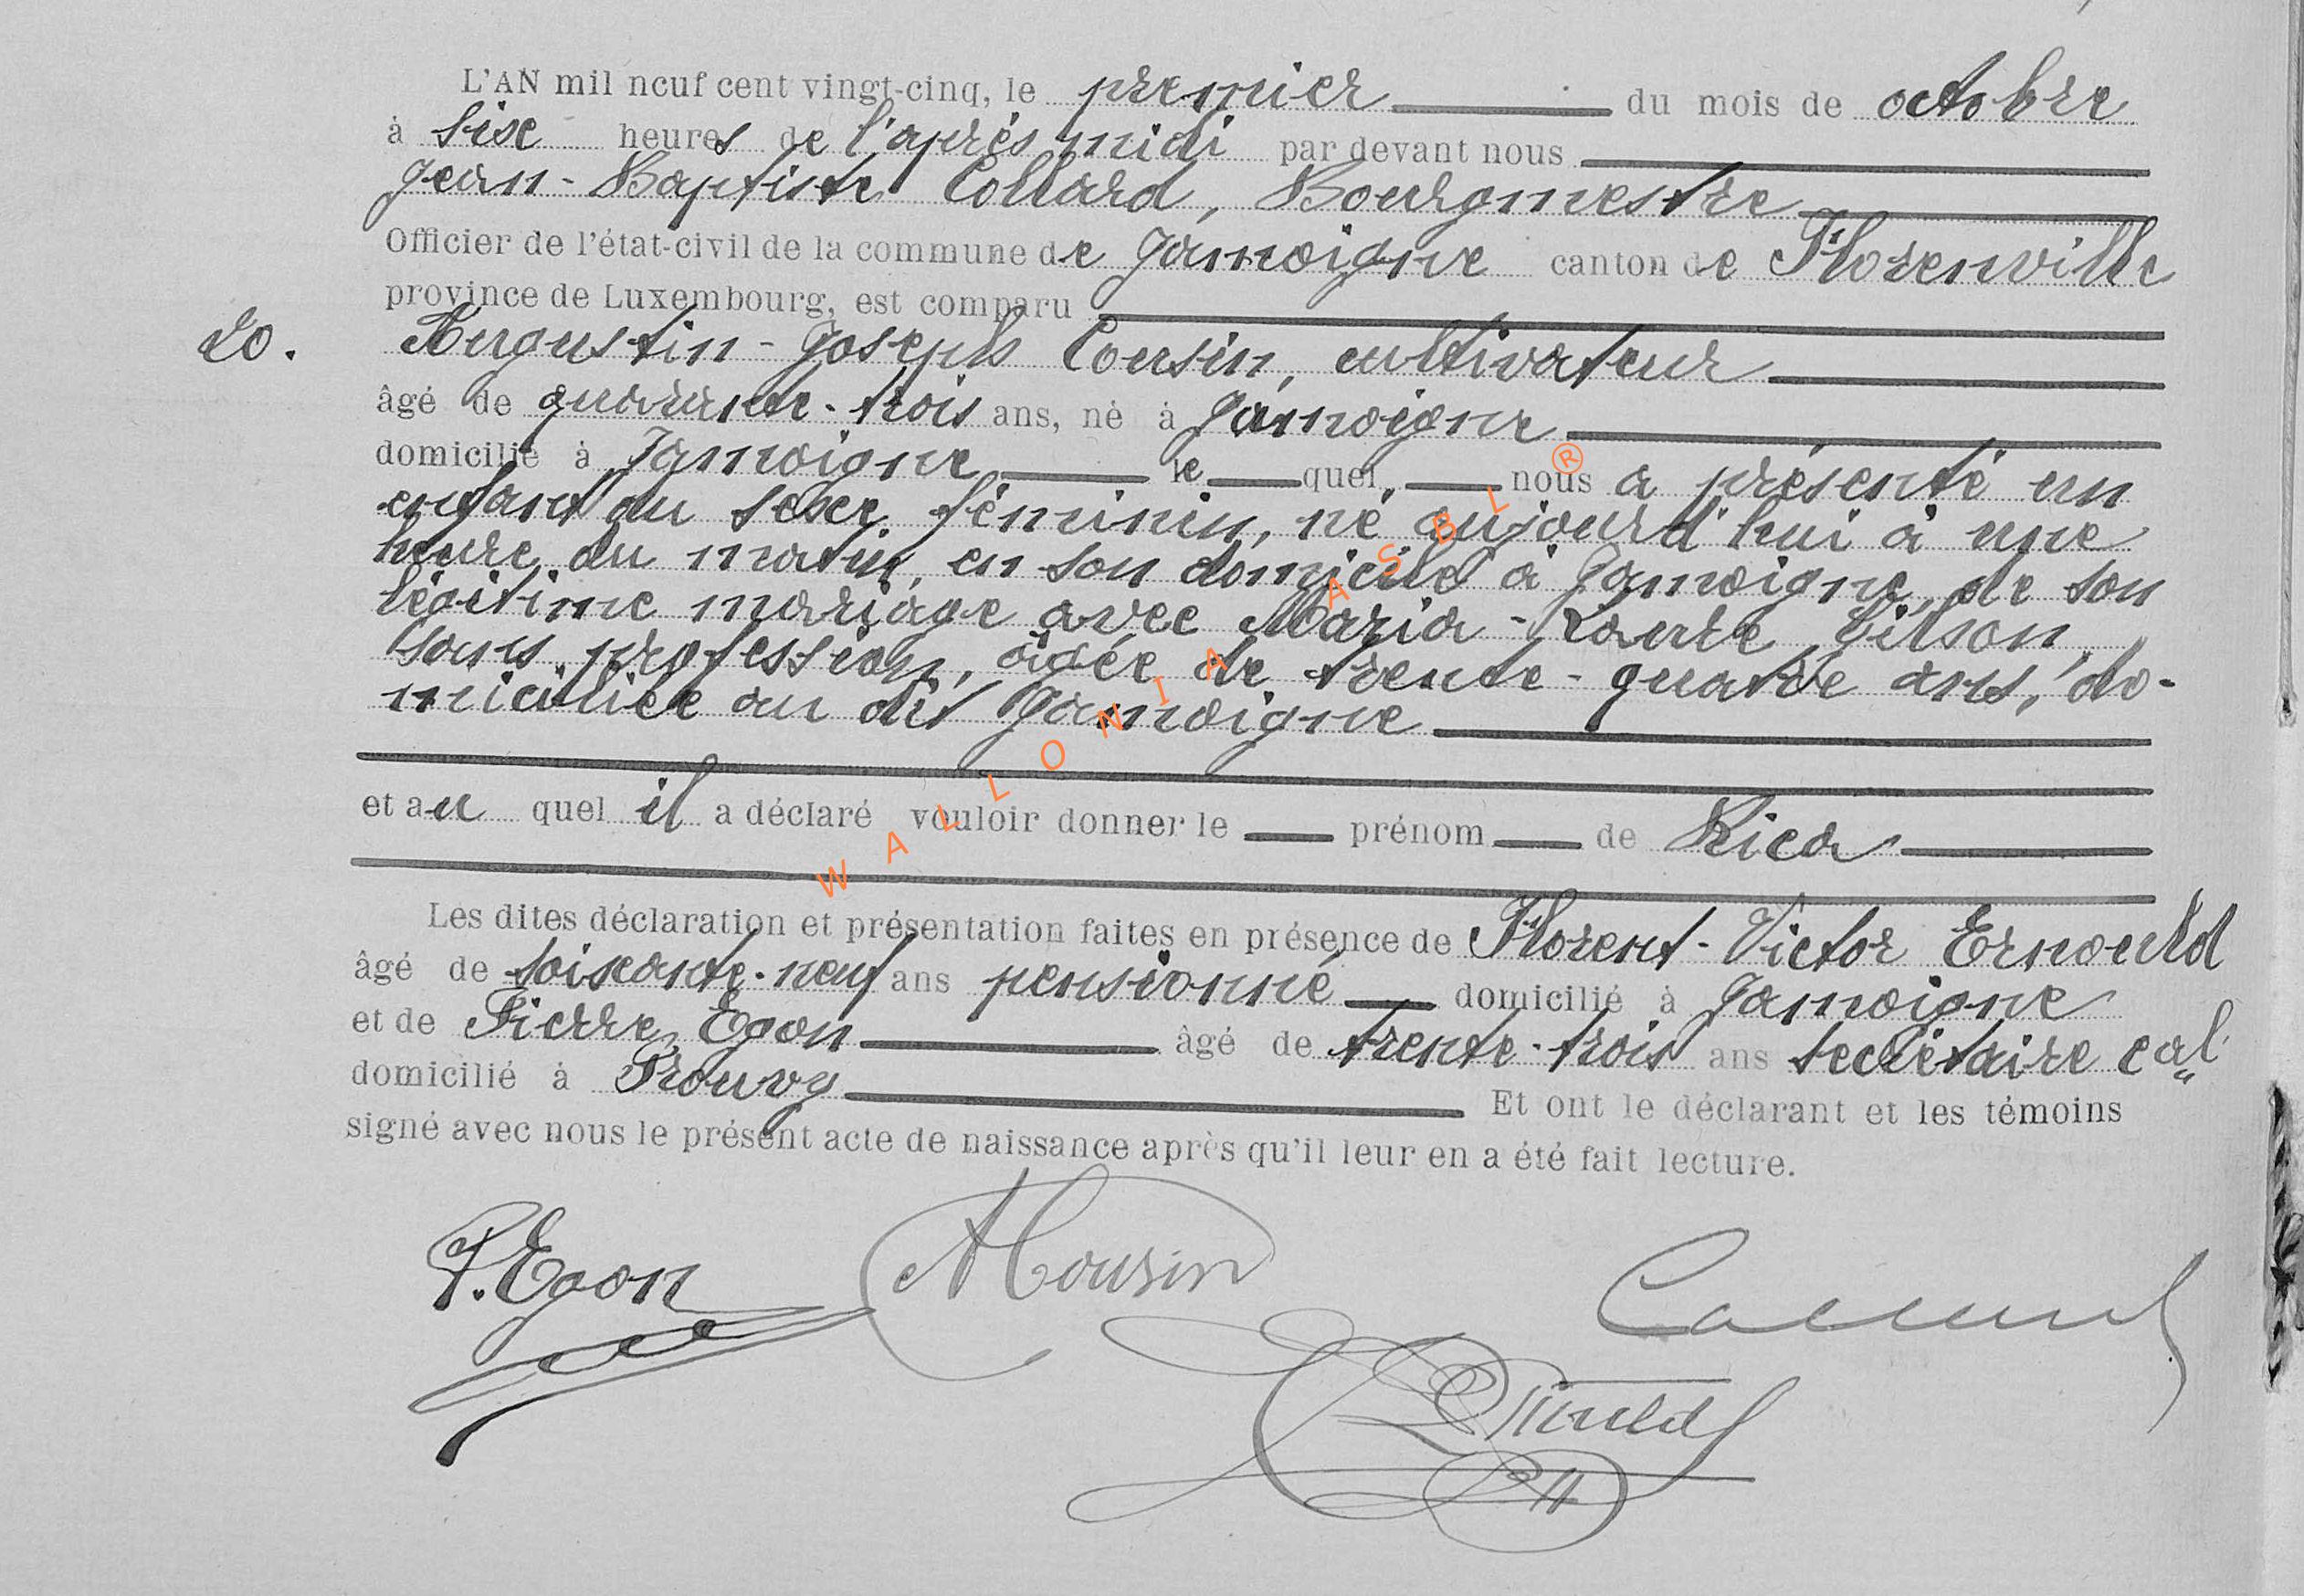 L'AN mil neuf cent vingt-cinq, le premier du mois de octobre
à six heures de l'après midi par devant nous
Jean-Baptiste Collard, Bourgmestre
Officier de l'état-civil de la commune de Jamoigne canton de Florenville
province de Luxembourg, est comparu
20. Augustin-Joseph Cousin, cultivateur
âgé de quarante-trois ans, né à Jamoigne
domicilié à Jamoigne le quel nous a présenté un
enfant du sexe féminin, né aujourd'hui à une
heure du matin, en son domicile à Jamoigne, de son
légitime mariage avec Maria-Laure Gilson,
sans profession, âgée de trente-quatre ans, do-
miciliée au dit Jamoigne
et au quel il a déclaré vouloir donner le prénom de Rica
Les dites déclaration et présentation faites en présence de Florent-Victor Ernould
âgé de soixante-neuf ans pensionné domicilié à Jamoigne
et de Pierre Egon âgé de trente-trois ans secrétaire cal
domicilié à Prouvy Et ont le déclarant et les témoins
signé avec nous le présent acte de naissance après qu'il leur en a été fait lecture.
P. Egon A Cousin Collard
Ernould
WALLONIA ASBL ®